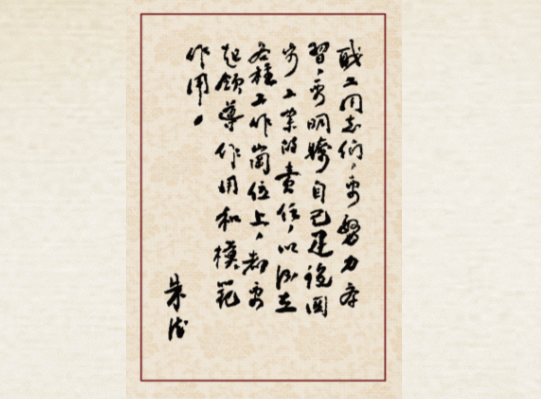 職工同志们,要努力学
習,要明瞭自己建设国
防工業的責任,以在
各種工作崗位上,都要
起領導作用和模範
作用。
朱德